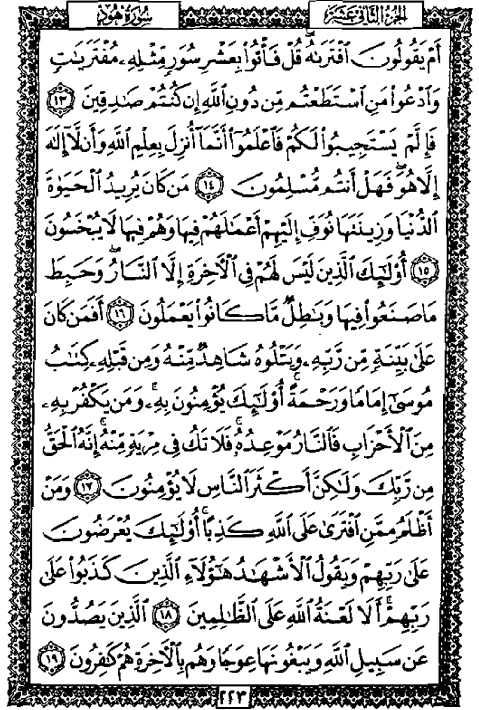 الجزء الثاني عشر
سورة هود
أَمْ يَقُولُونَ ٱفْتَرَىٰهُ ۖ قُلْ فَأْتُوا۟ بِعَشْرِ سُوَرٍ مِّثْلِهِۦ مُفْتَرَيَٰتٍ
وَٱدْعُوا۟ مَنِ ٱسْتَطَعْتُم مِّن دُونِ ٱللَّهِ إِن كُنتُمْ صَٰدِقِينَ ١٣
فَإِلَّمْ يَسْتَجِيبُوا۟ لَكُمْ فَٱعْلَمُوٓا۟ أَنَّمَآ أُنزِلَ بِعِلْمِ ٱللَّهِ وَأَن لَّآ إِلَٰهَ
إِلَّا هُوَ ۖ فَهَلْ أَنتُم مُّسْلِمُونَ ١٤ مَن كَانَ يُرِيدُ ٱلْحَيَوٰةَ
ٱلدُّنْيَا وَزِينَتَهَا نُوَفِّ إِلَيْهِمْ أَعْمَٰلَهُمْ فِيهَا وَهُمْ فِيهَا لَا يُبْخَسُونَ
١٥ أُو۟لَٰٓئِكَ ٱلَّذِينَ لَيْسَ لَهُمْ فِى ٱلْـَٔاخِرَةِ إِلَّا ٱلنَّارُ ۖ وَحَبِطَ
مَا صَنَعُوا۟ فِيهَا وَبَٰطِلٌ مَّا كَانُوا۟ يَعْمَلُونَ ١٦ أَفَمَن كَانَ
عَلَىٰ بَيِّنَةٍ مِّن رَّبِّهِۦ وَيَتْلُوهُ شَاهِدٌ مِّنْهُ وَمِن قَبْلِهِۦ كِتَٰبُ
مُوسَىٰٓ إِمَامًا وَرَحْمَةً ۚ أُو۟لَٰٓئِكَ يُؤْمِنُونَ بِهِۦ ۚ وَمَن يَكْفُرْ بِهِۦ
مِنَ ٱلْأَحْزَابِ فَٱلنَّارُ مَوْعِدُهُۥ ۚ فَلَا تَكُ فِى مِرْيَةٍ مِّنْهُ ۚ إِنَّهُ ٱلْحَقُّ
مِن رَّبِّكَ وَلَٰكِنَّ أَكْثَرَ ٱلنَّاسِ لَا يُؤْمِنُونَ ١٧ وَمَنْ
أَظْلَمُ مِمَّنِ ٱفْتَرَىٰ عَلَى ٱللَّهِ كَذِبًا ۚ أُو۟لَٰٓئِكَ يُعْرَضُونَ
عَلَىٰ رَبِّهِمْ وَيَقُولُ ٱلْأَشْهَٰدُ هَٰٓؤُلَآءِ ٱلَّذِينَ كَذَبُوا۟ عَلَىٰ
رَبِّهِمْ ۚ أَلَا لَعْنَةُ ٱللَّهِ عَلَى ٱلظَّٰلِمِينَ ١٨ ٱلَّذِينَ يَصُدُّونَ
عَن سَبِيلِ ٱللَّهِ وَيَبْغُونَهَا عِوَجًا وَهُم بِٱلْـَٔاخِرَةِ هُمْ كَٰفِرُونَ ١٩
٢٢٣